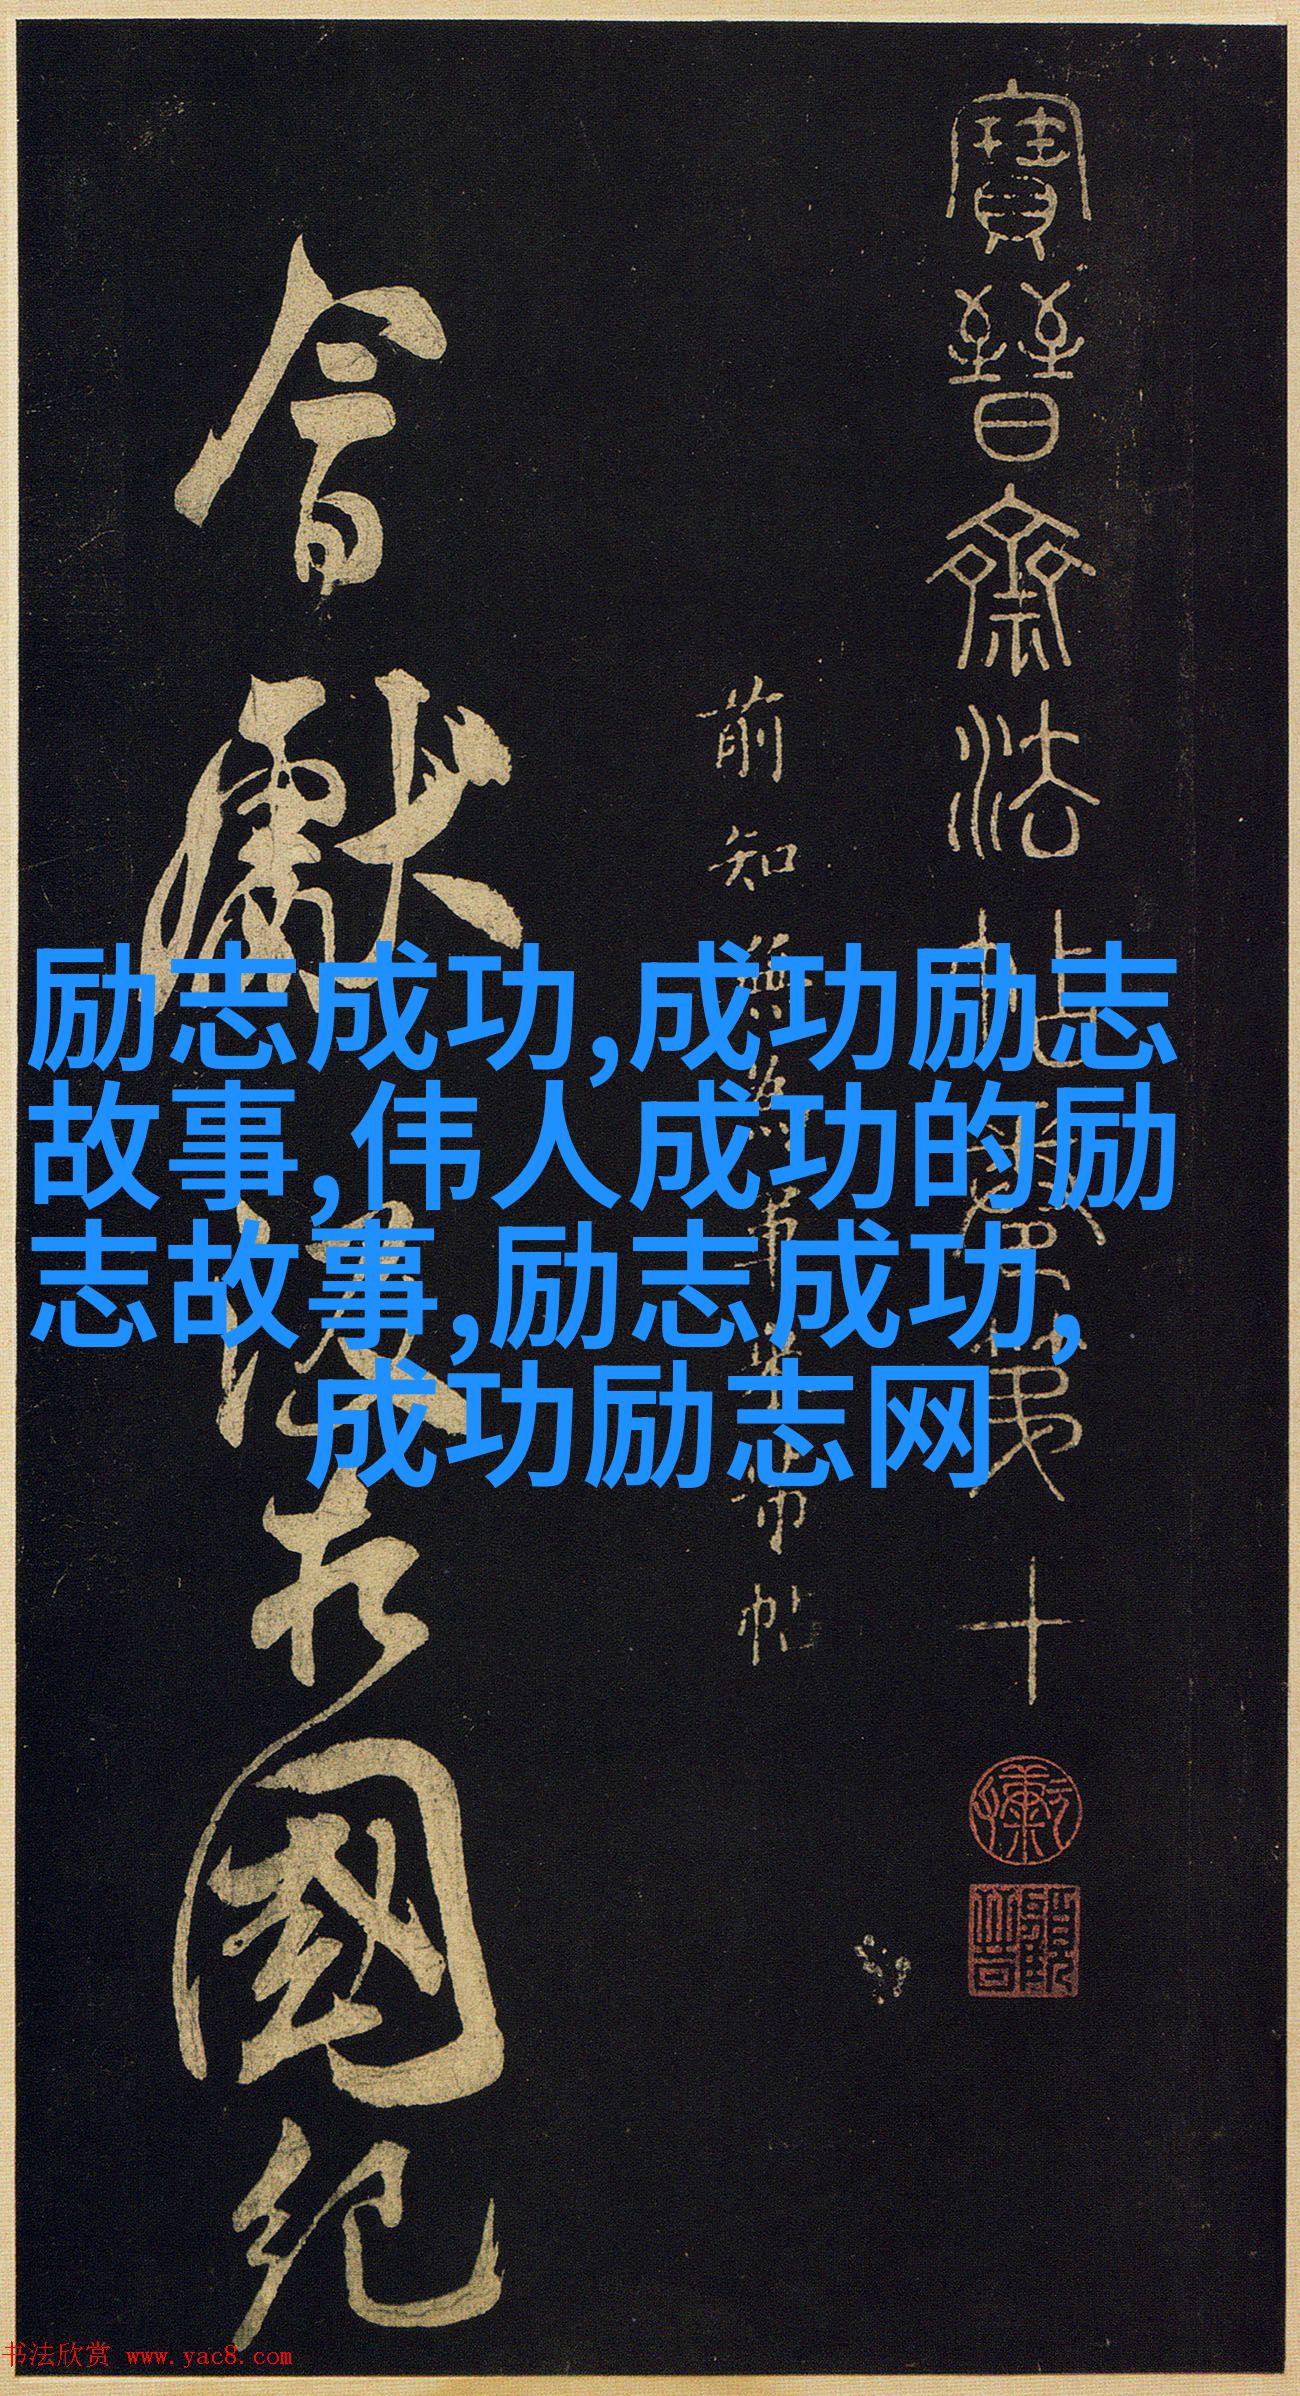 寶晉齋法帖卷第十
前知無為軍米芾帖
獻
國紀
励志成功,成功励志
故事,伟人成功的励
志故事,励志成功,
成功励志网
书法欣赏 www.yac8.com